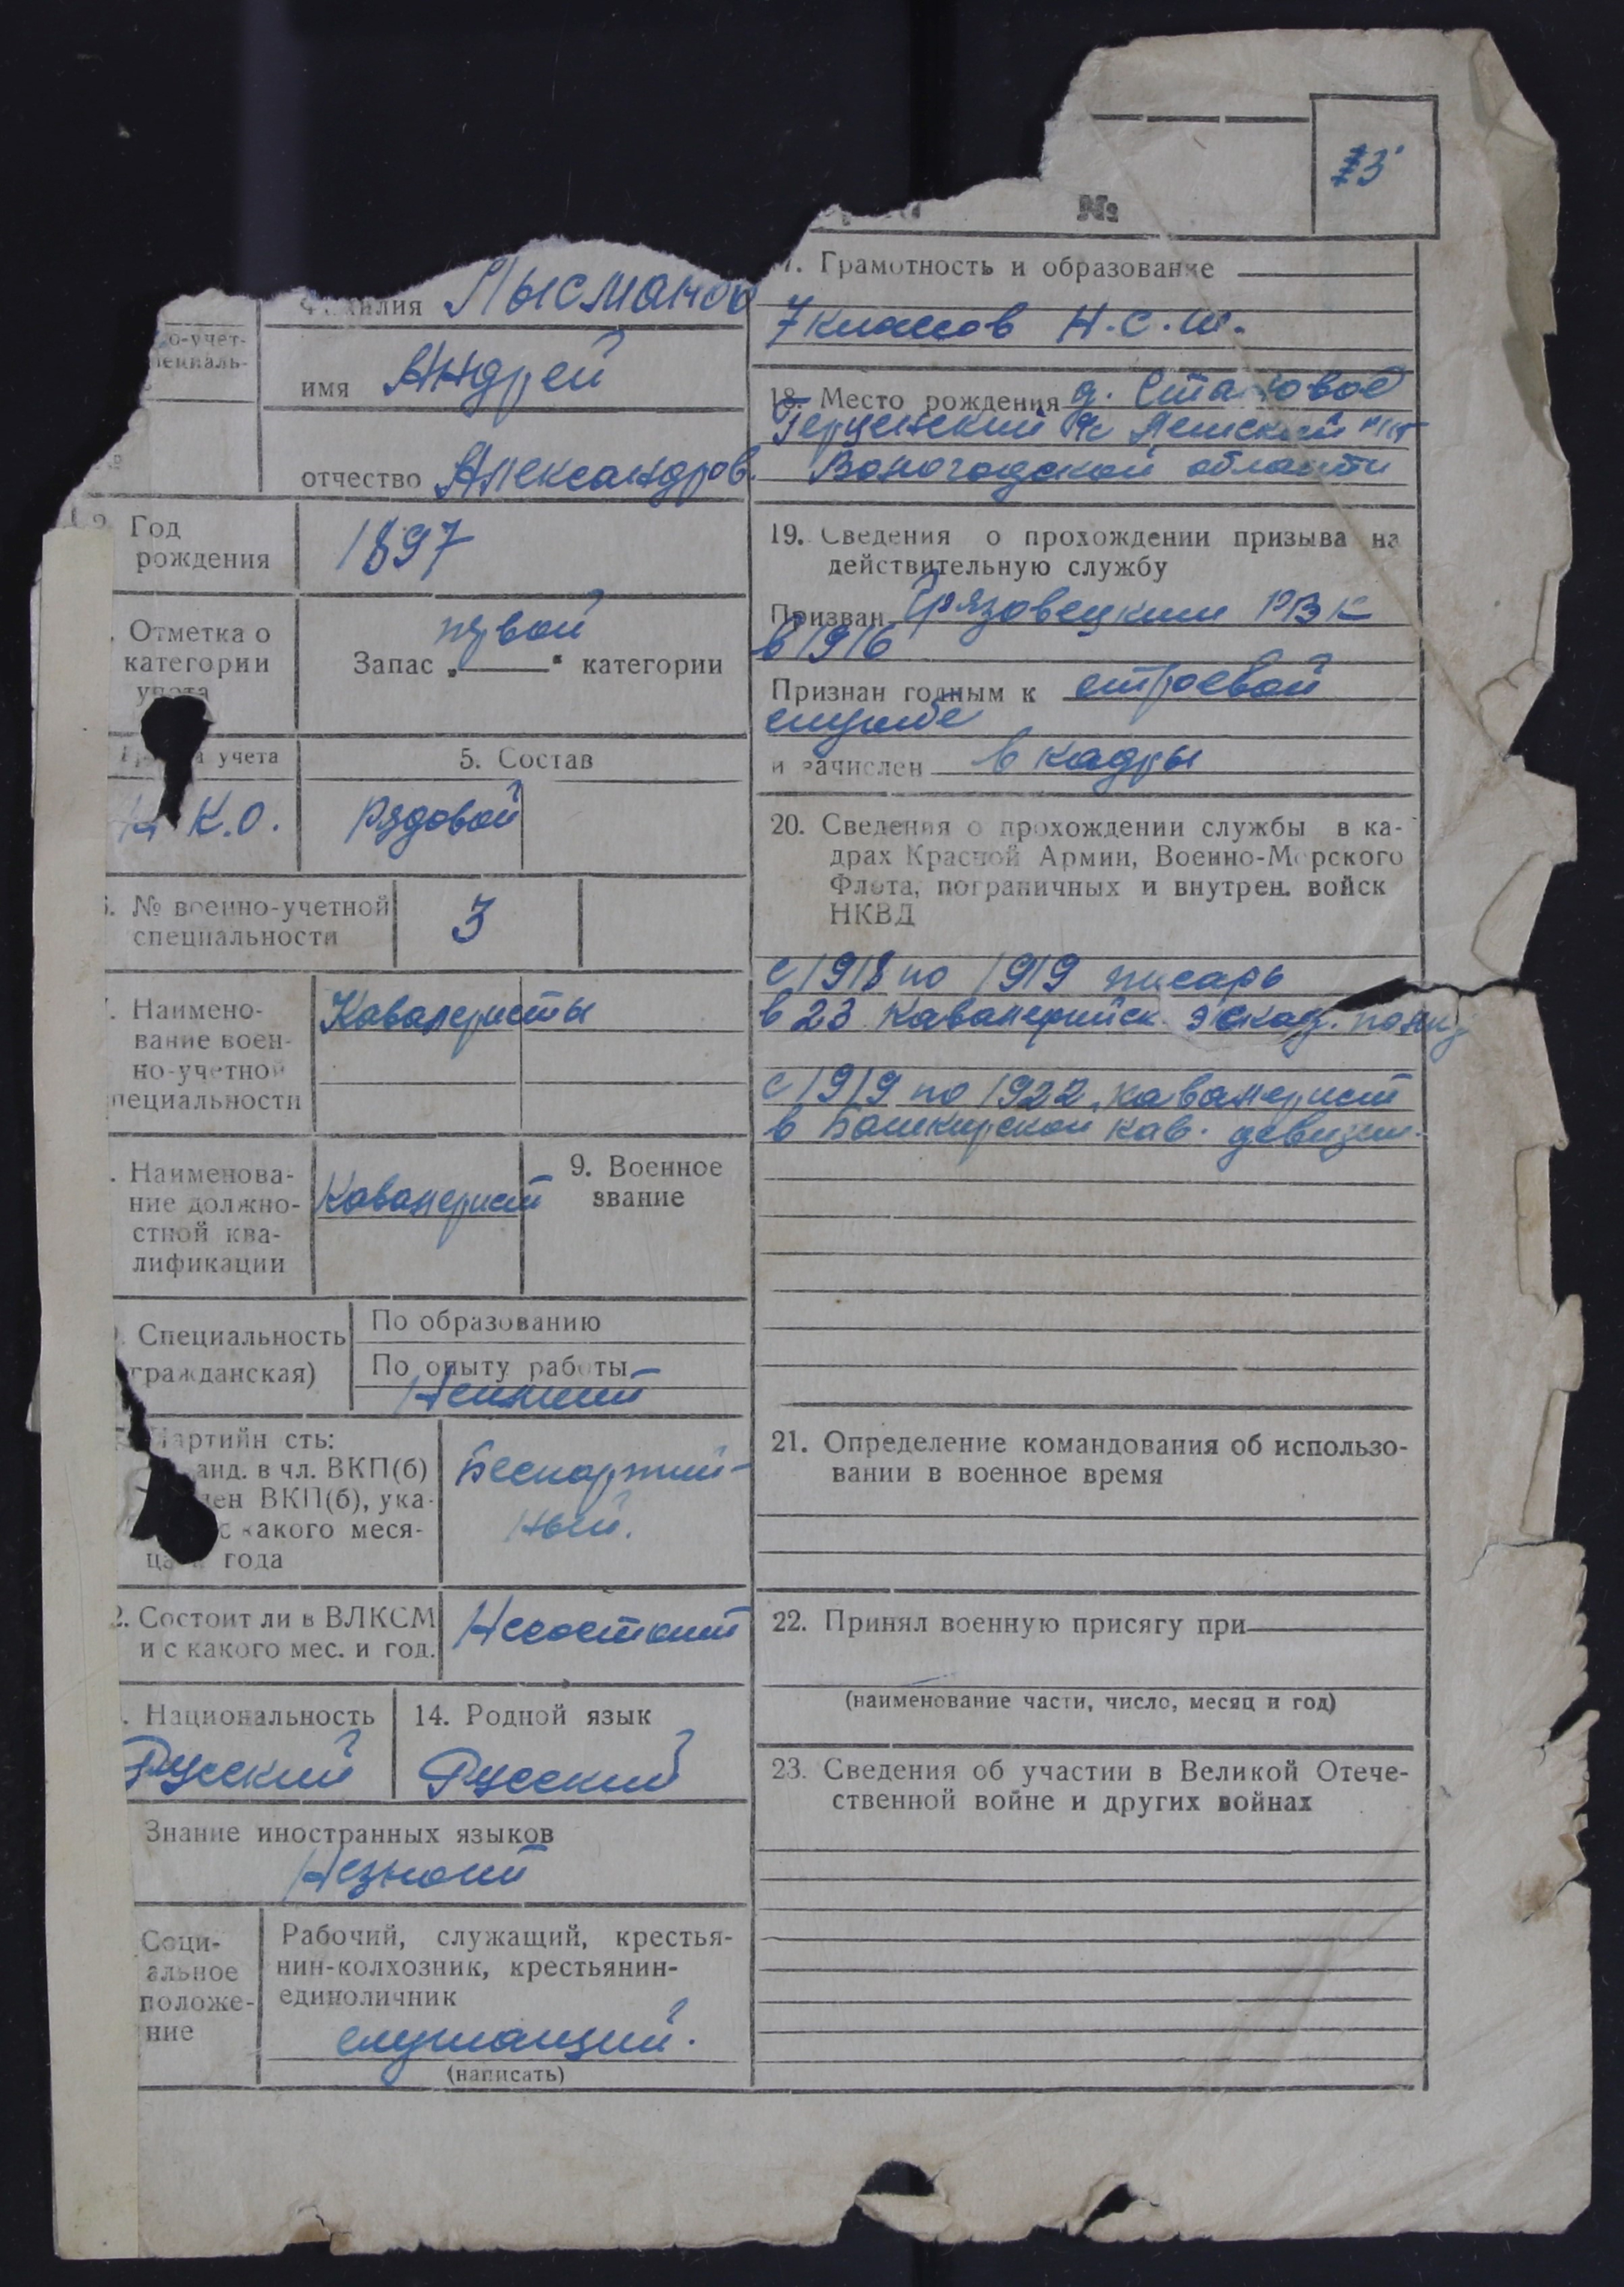 №
13
Фамилия Лысманов
о-учет-
имя Андрей
отчество Александров.
Год
рождения
1897
Отметка о
категории
учета
первой
Запас „ “ категории
учета
К.О.
5. Состав
Рядовой
№ военно-учетной
специальности
3
Наимено-
вание воен-
но-учетной
специальности
Кавалеристы
Наименова-
ние должно-
стной ква-
лификации
Кавалерист
9. Военное
звание
Специальность
гражданская)
По образованию
По опыту работы
Партийн сть:
канд. в чл. ВКП(б)
член ВКП(б), ука-
с какого меся-
ца и года
Беспартий-
ный.
2. Состоит ли в ВЛКСМ
и с какого мес. и год.
Несостоит
Национальность
Русский
14. Родной язык
Русский
Знание иностранных языков
Незнает
Соци-
альное
положе-
ние
Рабочий, служащий, крестья-
нин-колхозник, крестьянин-
единоличник
служащий.
(написать)
7. Грамотность и образование
7 классов Н.С.Ш.
18. Место рождения д. Становое
Вологодской области
19. Сведения о прохождении призыва на
действительную службу
Призван Грязовецким РВК
в 1916
Признан годным к строевой
службе
и зачислен в кадры
20. Сведения о прохождении службы в ка-
драх Красной Армии, Военно-Морского
Флота, пограничных и внутрен. войск
НКВД
с 1918 по 1919 писарь
в 23 кавалерийск. эскад. полку
с 1919 по 1922 кавалерист
в Башкирской кав. девизии.
21. Определение командования об использо-
вании в военное время
22. Принял военную присягу при
(наименование части, число, месяц и год)
23. Сведения об участии в Великой Отече-
ственной войне и других войнах